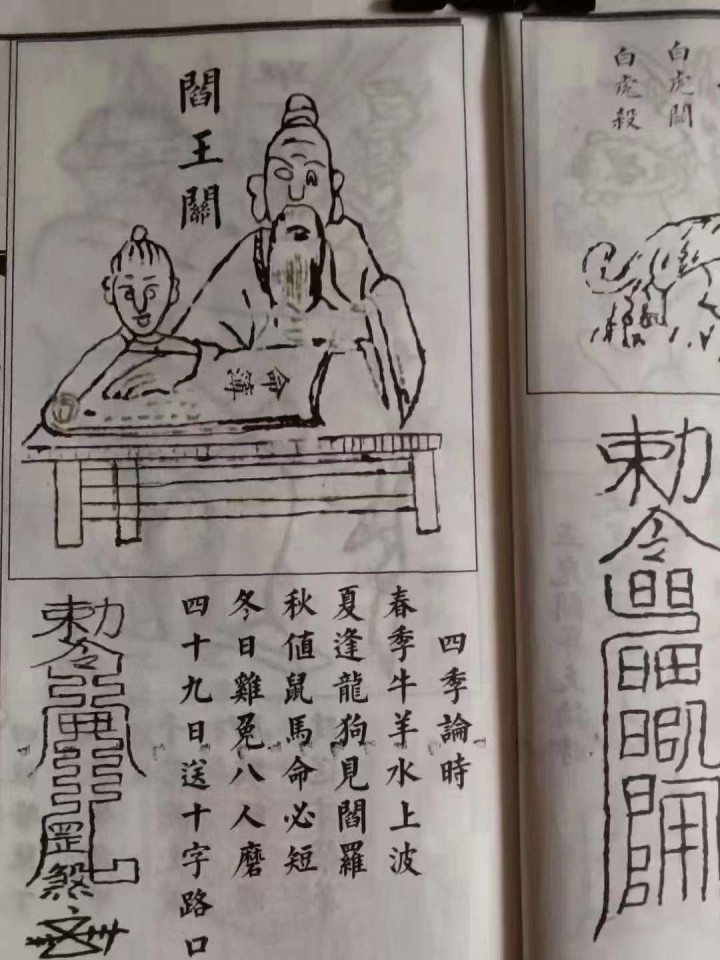 閻王關
命簿
四季論時
春季牛羊水上波
夏逢龍狗見閻羅
秋值鼠馬命必短
冬日雞兔八人磨
四十九日送十字路口
敕令
罡煞
白虎關
白虎殺
敕令